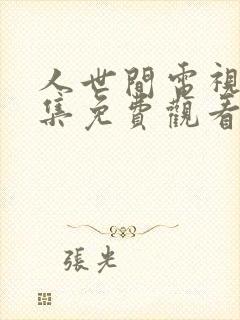 人世間電視
集免費觀看
張光